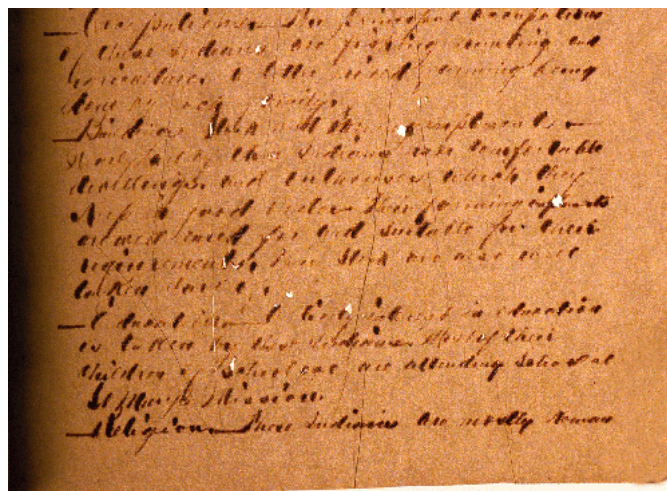 Occupations. The principal occupations
of these Indians are fishing hunting and
farming being
done on each
Buildings Stock and Farm Implements.
of these Indians have comfortable
dwellings and outhouses which they
keep in good order. Their farming implements
are well cared for and suitable for their
requirements. Their stock are also well
taken care of.
Education. interest in education
is taken by these Indians. Most of their
children of School age are attending School at
St Marys Mission.
Religion. These Indians are mostly Roman